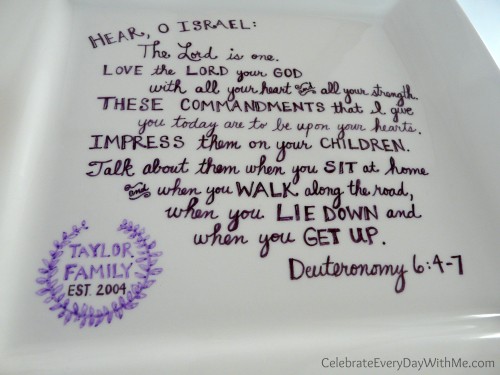 HEAR, O ISRAEL:
The Lord is one.
LOVE the LORD your GOD
with all your heart and all your strength.
THESE COMMANDMENTS that I give
you today are to be upon your hearts.
IMPRESS them on your CHILDREN.
Talk about them when you SIT at home
and when you WALK along the road,
when you LIE DOWN and
when you GET UP.
Deuteronomy 6:4-7
TAYLOR
FAMILY
EST. 2004
CelebrateEveryDayWithMe.com